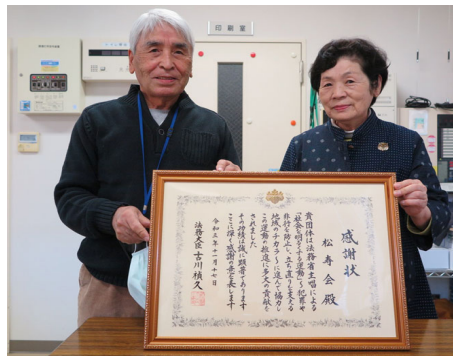 印刷室
感謝状
松寿会殿
貴団体は法務省主唱による
“社会を明るくする運動”～犯罪や
非行を防止し立ち直りを支える
地域のチカラ～に進んで協力し
この運動の推進に多大の貢献を
されました
その功績は誠に顕著であります
ここに深く感謝の意を表します
令和三年十一月十七日
法務大臣 古川禎久